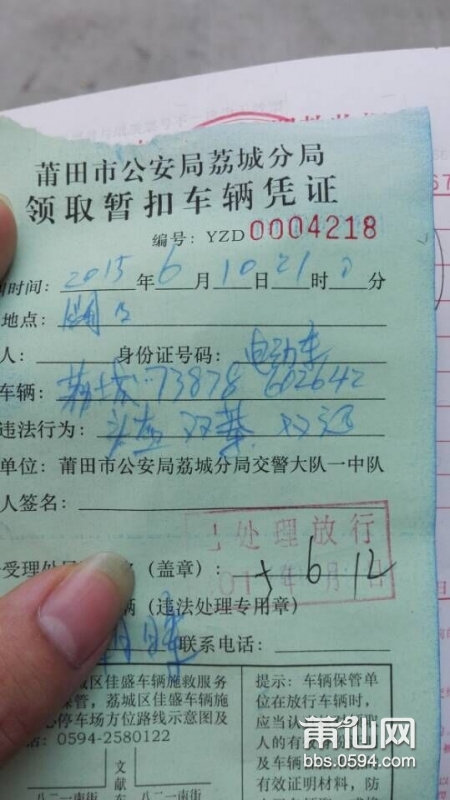 莆田市公安局荔城分局
领取暂扣车辆凭证
编号: YZD 0004218
时间: 2015 年 6 月 10 日 21 时 0 分
地点:
人: 身份证号码: 电动车
车辆: 荔城 73878 602642
违法行为: 头盔
单位: 莆田市公安局荔城分局交警大队一中队
人签名:
处理放行
受理处 (盖章): 6 12
辆 (违法处理专用章)
联系电话:
城区佳盛车辆施救服务
保管, 荔城区佳盛车辆施
心停车场方位路线示意图及
话: 0594-2580122
文献
八二一南街
八二一南街
提示: 车辆保管单
位在放行车辆时,
应当认
人的有
及车辆
有效证明材料, 防
莆仙网
bbs.0594.com